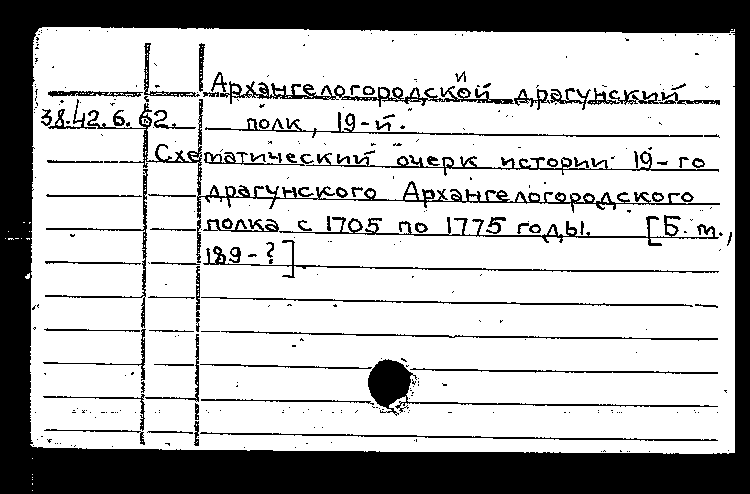 Архангелогородский драгунский
38.42.6.62. полк, 19-й.
Схематический очерк истории 19-го
драгунского Архангелогородского
полка с 1705 по 1775 годы. [Б. м.,
189-?]